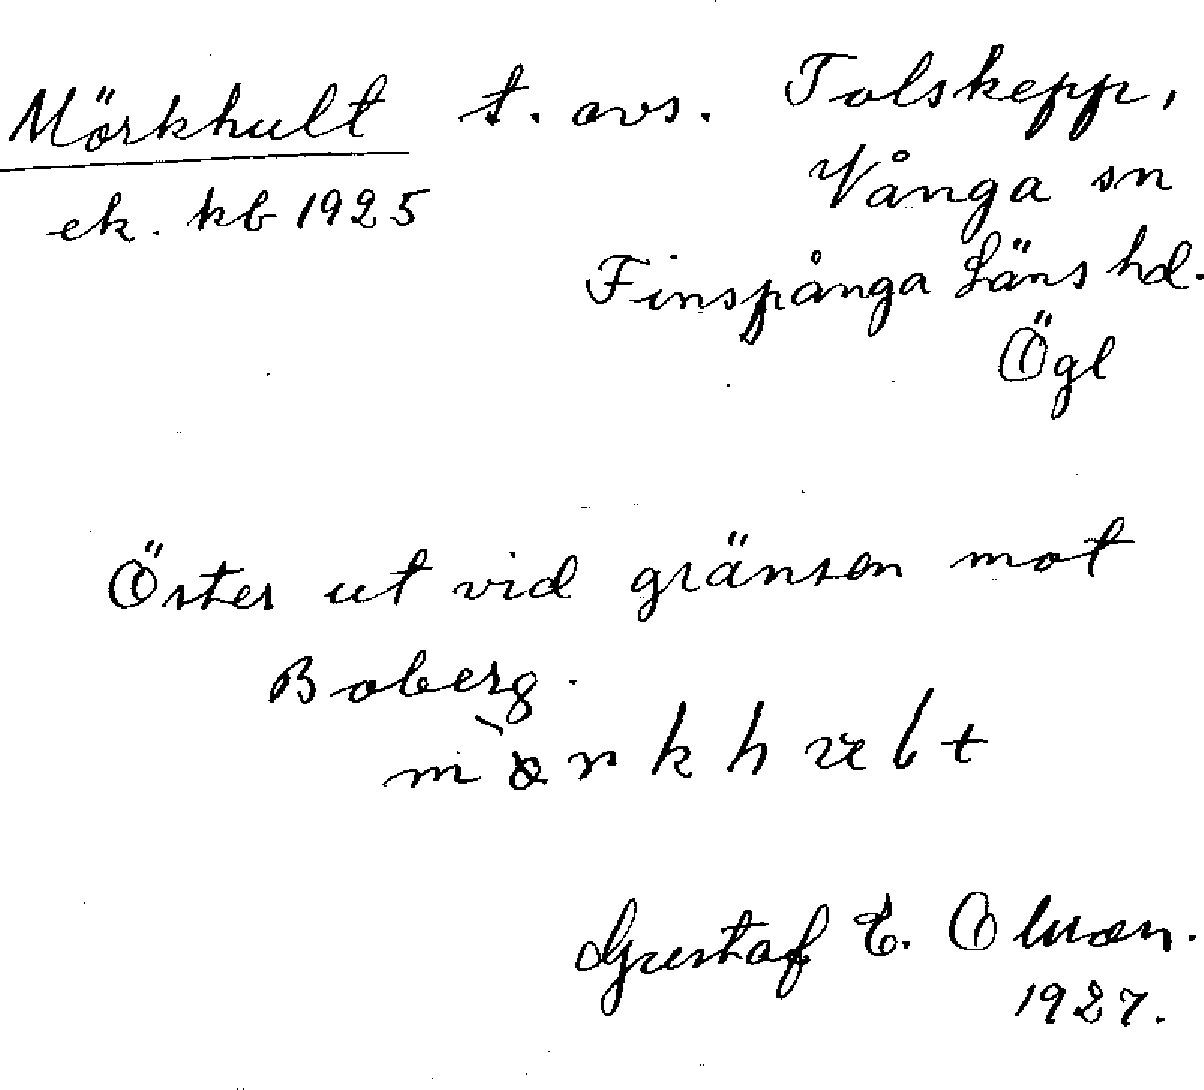 Mörkhult t. avs. Tolskepp,
ek. kb 1925 Vånga sn
Finspånga Läns hd.
Ögl
Öster ut vid gränsen mot
Boberg.
Gustaf E. Olman.
1927.